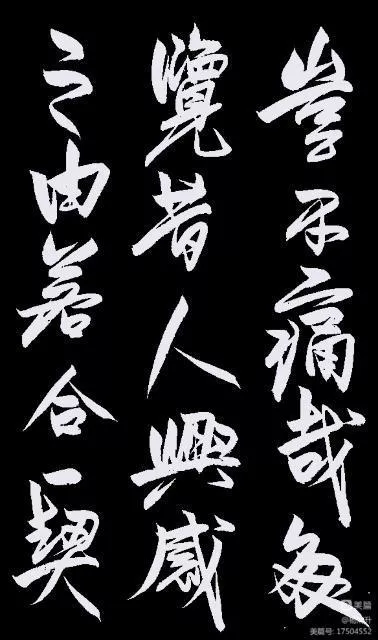 豈不痛哉每
覽昔人興感
之由若合一契
美篇
美篇号: 17504552